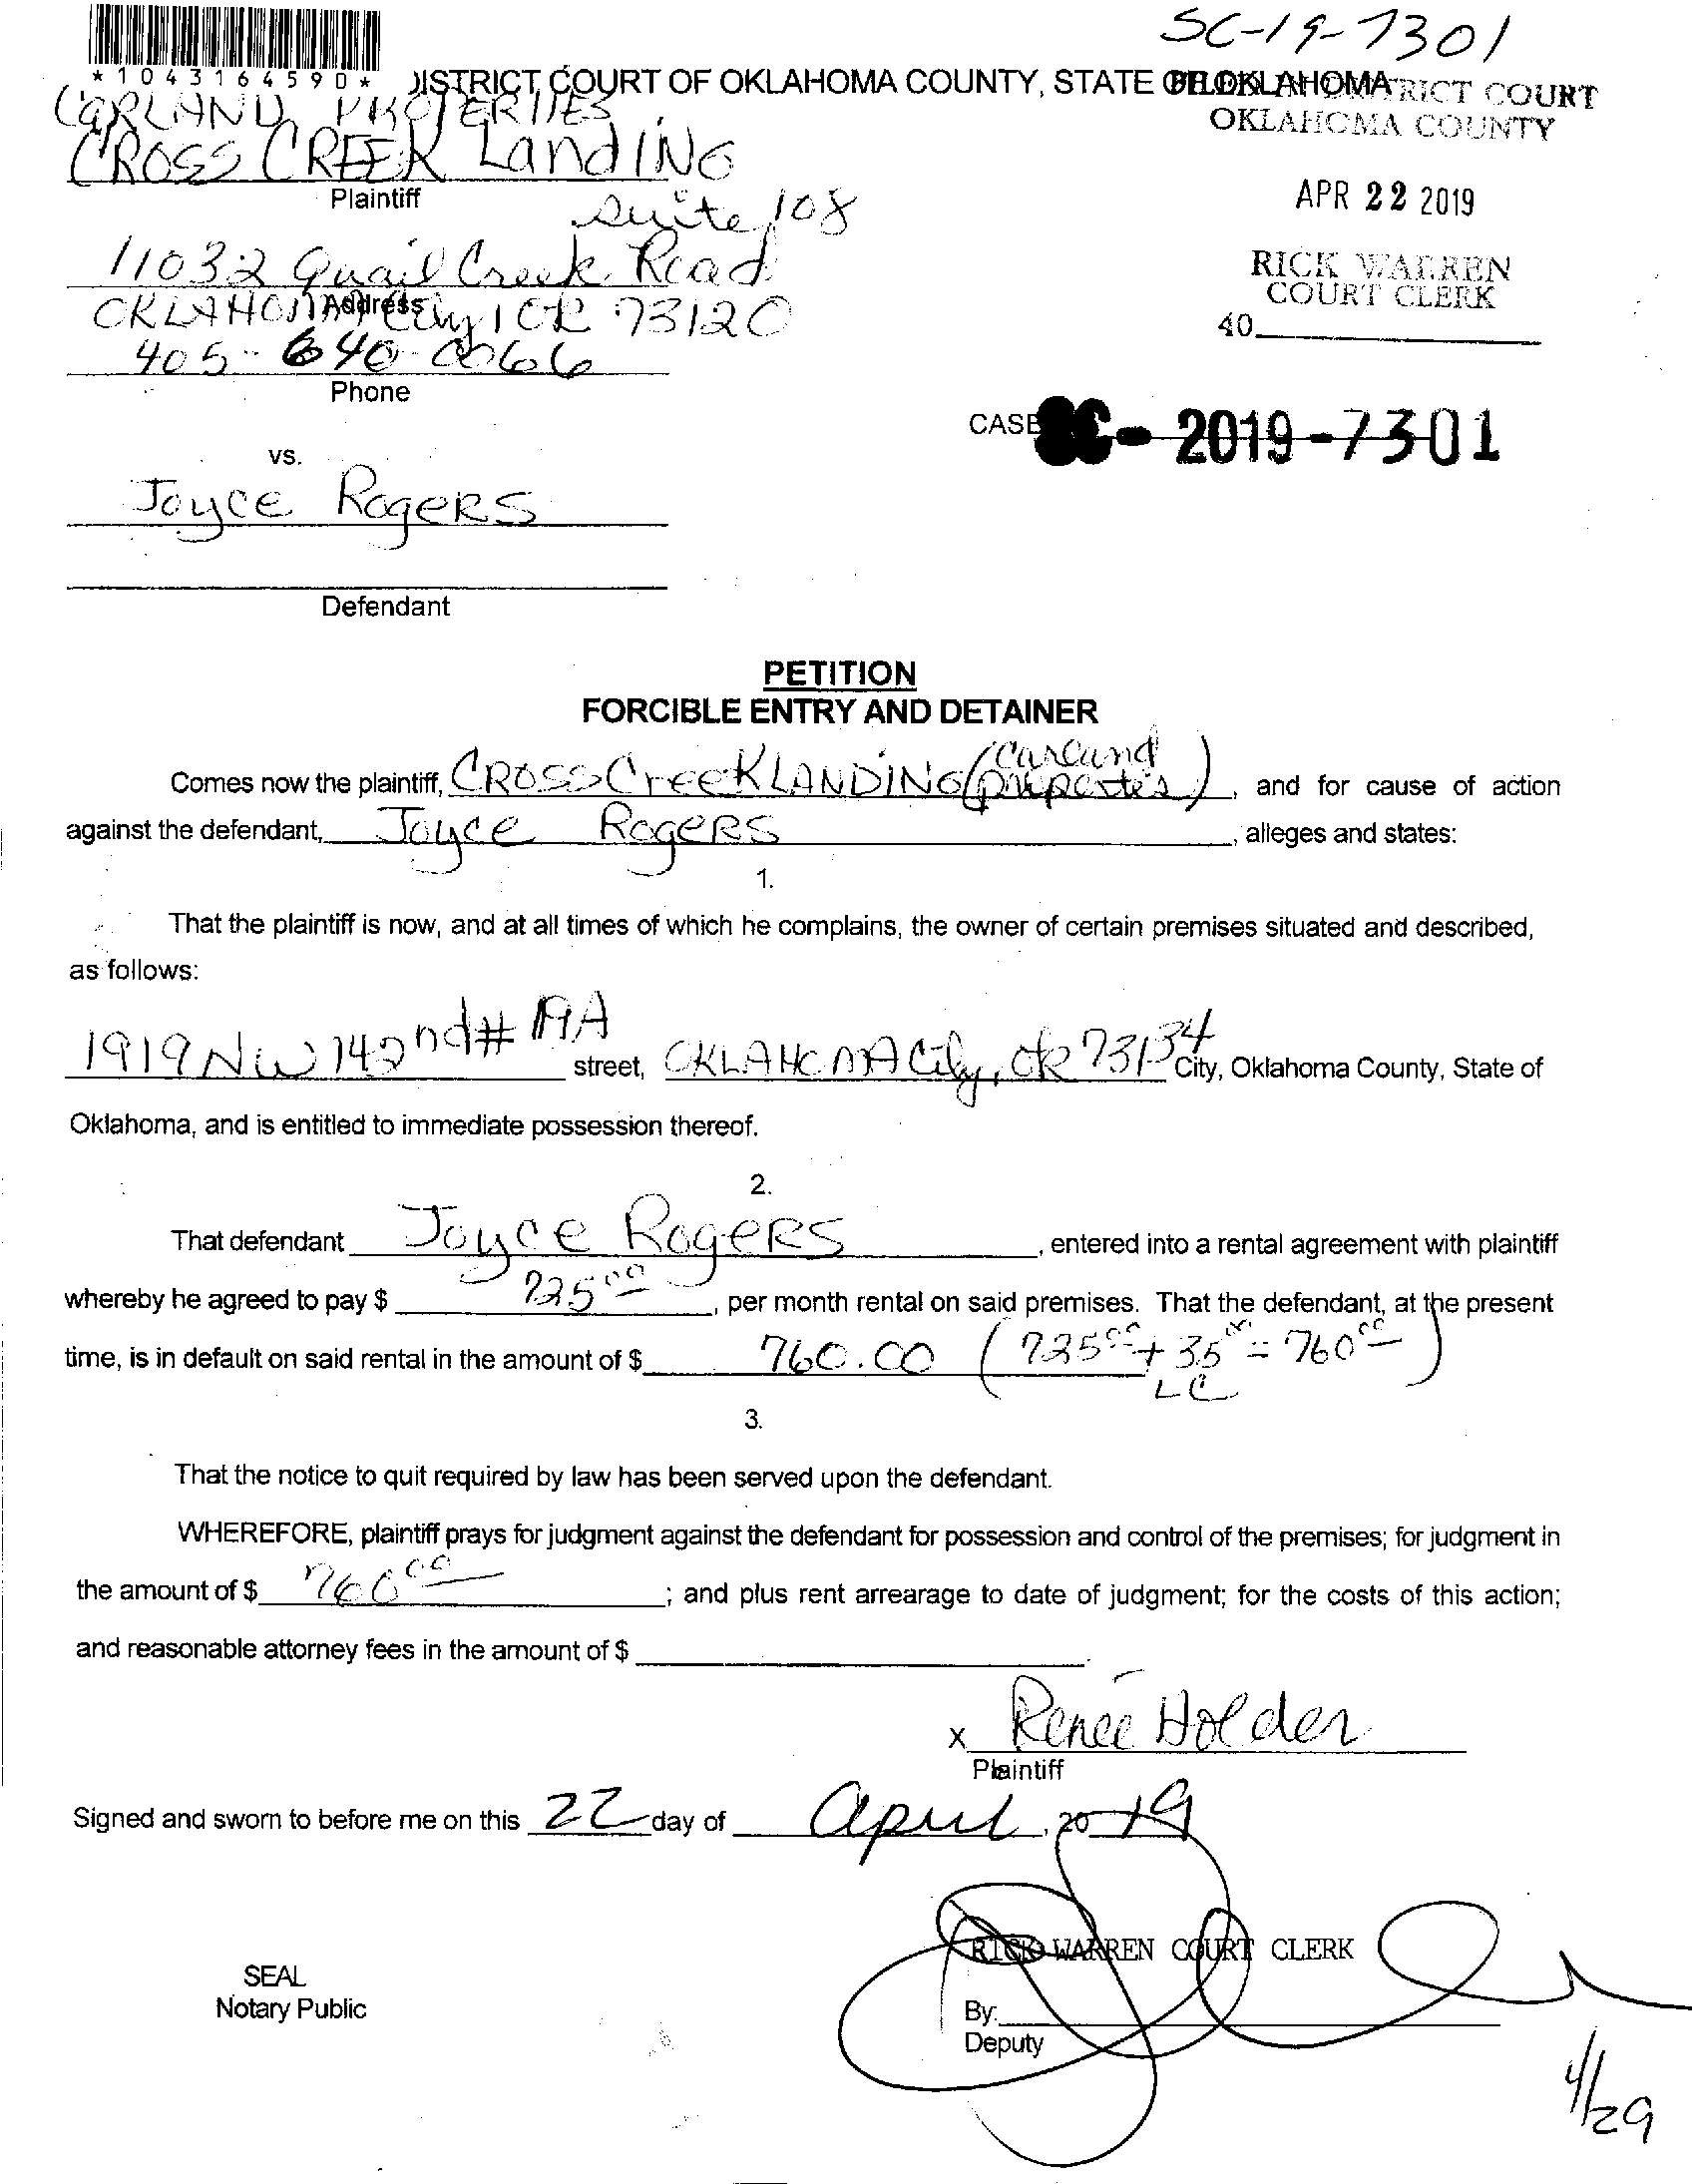 SC-19-7301
*1043164590*
DISTRICT COURT OF OKLAHOMA COUNTY, STATE OF OKLAHOMA
DISTRICT COURT
OKLAHOMA COUNTY
CARLAND PROPERTIES
CROSS CREEK LandING
Plaintiff
Suite 108
APR 22 2019
11032 Quail Creek Road
Address
OKLAHOMA City, OK 73120
RICK WARREN
COURT CLERK
40
405-640-0066
Phone
CASE SC- 2019-7301
vs.
Joyce Rogers
Defendant
PETITION
FORCIBLE ENTRY AND DETAINER
Comes now the plaintiff, CROSS CreeK LANDING (Carland properties), and for cause of action
against the defendant, Joyce Rogers, alleges and states:
1.
That the plaintiff is now, and at all times of which he complains, the owner of certain premises situated and described,
as follows:
1919 NW 142nd # 19A street, OKLAHOMA City, OK 73134 City, Oklahoma County, State of
Oklahoma, and is entitled to immediate possession thereof.
2.
That defendant Joyce Rogers, entered into a rental agreement with plaintiff
whereby he agreed to pay $ 725.00, per month rental on said premises. That the defendant, at the present
time, is in default on said rental in the amount of $ 760.00 (725.00 + 35.00 = 760.00)
LC
3.
That the notice to quit required by law has been served upon the defendant.
WHEREFORE, plaintiff prays for judgment against the defendant for possession and control of the premises; for judgment in
the amount of $ 760.00; and plus rent arrearage to date of judgment; for the costs of this action;
and reasonable attorney fees in the amount of $
x Renee Holder
Plaintiff
Signed and sworn to before me on this 22 day of April, 2019
RICK WARREN COURT CLERK
SEAL
Notary Public
By:
Deputy
4/29